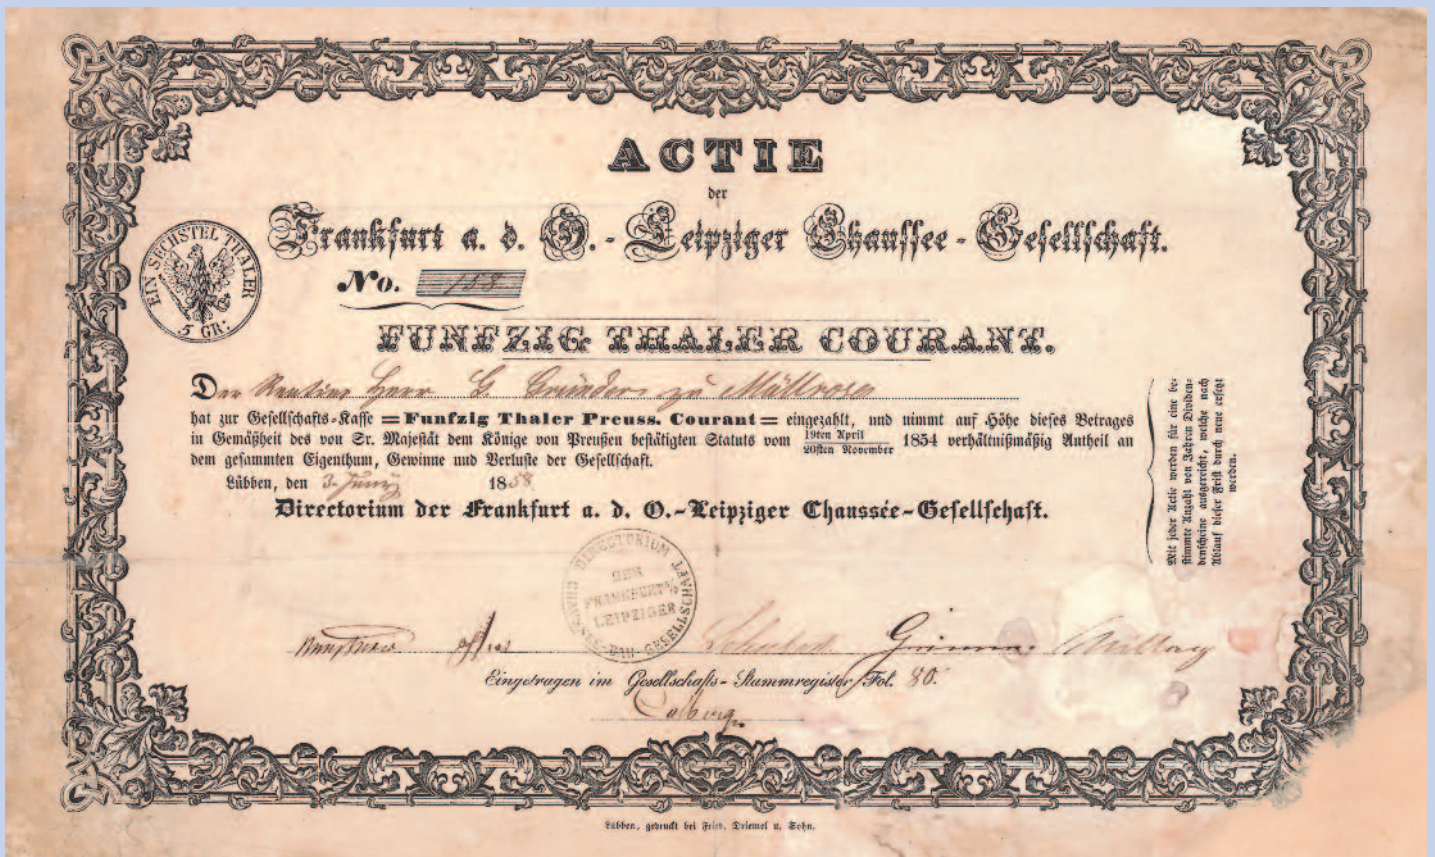 ACTIE
der
Frankfurt a. d. O.-Leipziger Chaussee-Gesellschaft.
EIN SECHSTEL THALER
5 GR:
No. 158
FUNFZIG THALER COURANT.
Der Rentier Herr G. Gründer zu Müllrose
hat zur Gesellschafts-Kasse =Funfzig Thaler Preuss. Courant= eingezahlt, und nimmt auf Höhe dieses Betrages
in Gemäßheit des von Sr. Majestät dem Könige von Preußen bestätigten Statuts vom 19ten April / 20sten November 1854 verhältnißmäßig Antheil an
dem gesammten Eigenthum, Gewinne und Verluste der Gesellschaft.
Lübben, den 3. Juny 1858
Directorium der Frankfurt a. d. O.-Leipziger Chaussée-Gesellschaft.
Mit jeder Actie werden für eine be-
stimmte Anzahl von Jahren Dividen-
denscheine ausgereicht, welche nach
Ablauf dieser Frist durch neue ersetzt
werden.
DIRECTORIUM
DER
FRANKFURT
LEIPZIGER
CHAUSSEE-BAU-GESELLSCHAFT
Eingetragen im Gesellschafts-Stammregister Fol. 80.
Lübben, gedruckt bei Fried. Driemel u. Sohn.